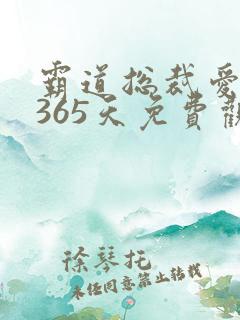 霸道总裁爱
365天免費觀
徐琴托
未经同意禁止转载